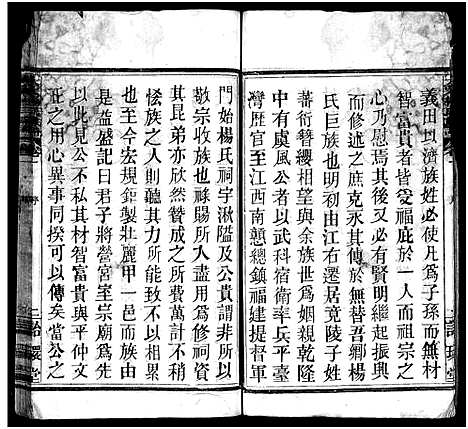 義田以濟族姓必使凡爲子孫而無材
智富貴者皆受福庇於一人而祖宗之
心乃慰焉其後又必有賢明繼起振興
而修述之庶克永其傳於無替吾鄉楊
氏巨族也明初由江右遷居竟陵子姓
蕃衍簪纓相望與余族世爲姻親乾隆
中有虞風公者以武科宿衛率兵平臺
灣歷官至江西南贛總鎮福建提督軍
門始楊氏祠宇湫隘及公貴謂非所以
敬宗收族也祿賜所入盡用爲修祠資
其昆弟亦欣然贊成之所費萬計不稍
恡族之人莫不多公之材智以相與有成
也至今宏規鉅製壯麗甲一邑而族由
是益盛記曰君子將營宮室宗廟爲先
以此見公不私其材智富貴與平仲文
正之用心異事同揆可以傳矣當公之